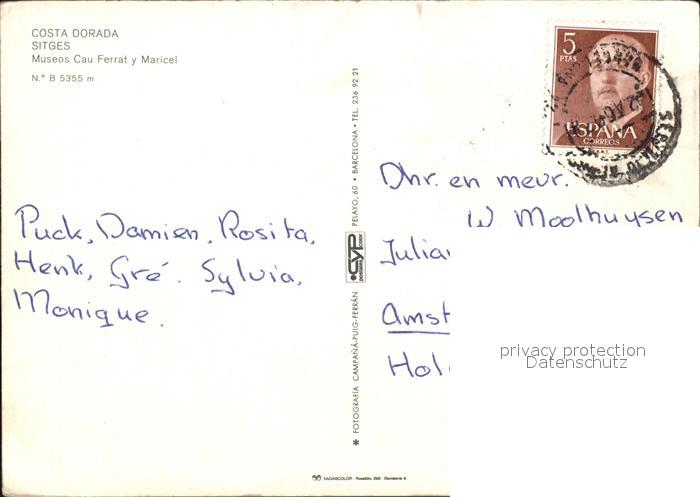 COSTA DORADA
SITGES
Museos Cau Ferrat y Maricel
N.° B 5355 m
Puck, Damien, Rosita,
Henk, Gré. Sylvia,
Monique.
* FOTOGRAFÍA CAMPAÑÁ-PUIG-FERRÁN
CYP
PELAYO, 60 • BARCELONA • TEL. 236 92 21
5
PTAS
ESPAÑA
CORREOS
Dhr. en mevr.
W Moolhuysen
Julia
Amst
Hol
privacy protection
Datenschutz
SADAGCOLOR - Rosellón, 298 - Barcelona